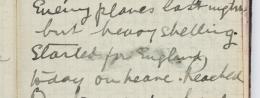 Enemy planes last night
but heavy shelling.
Started for England
today on leave. Reached